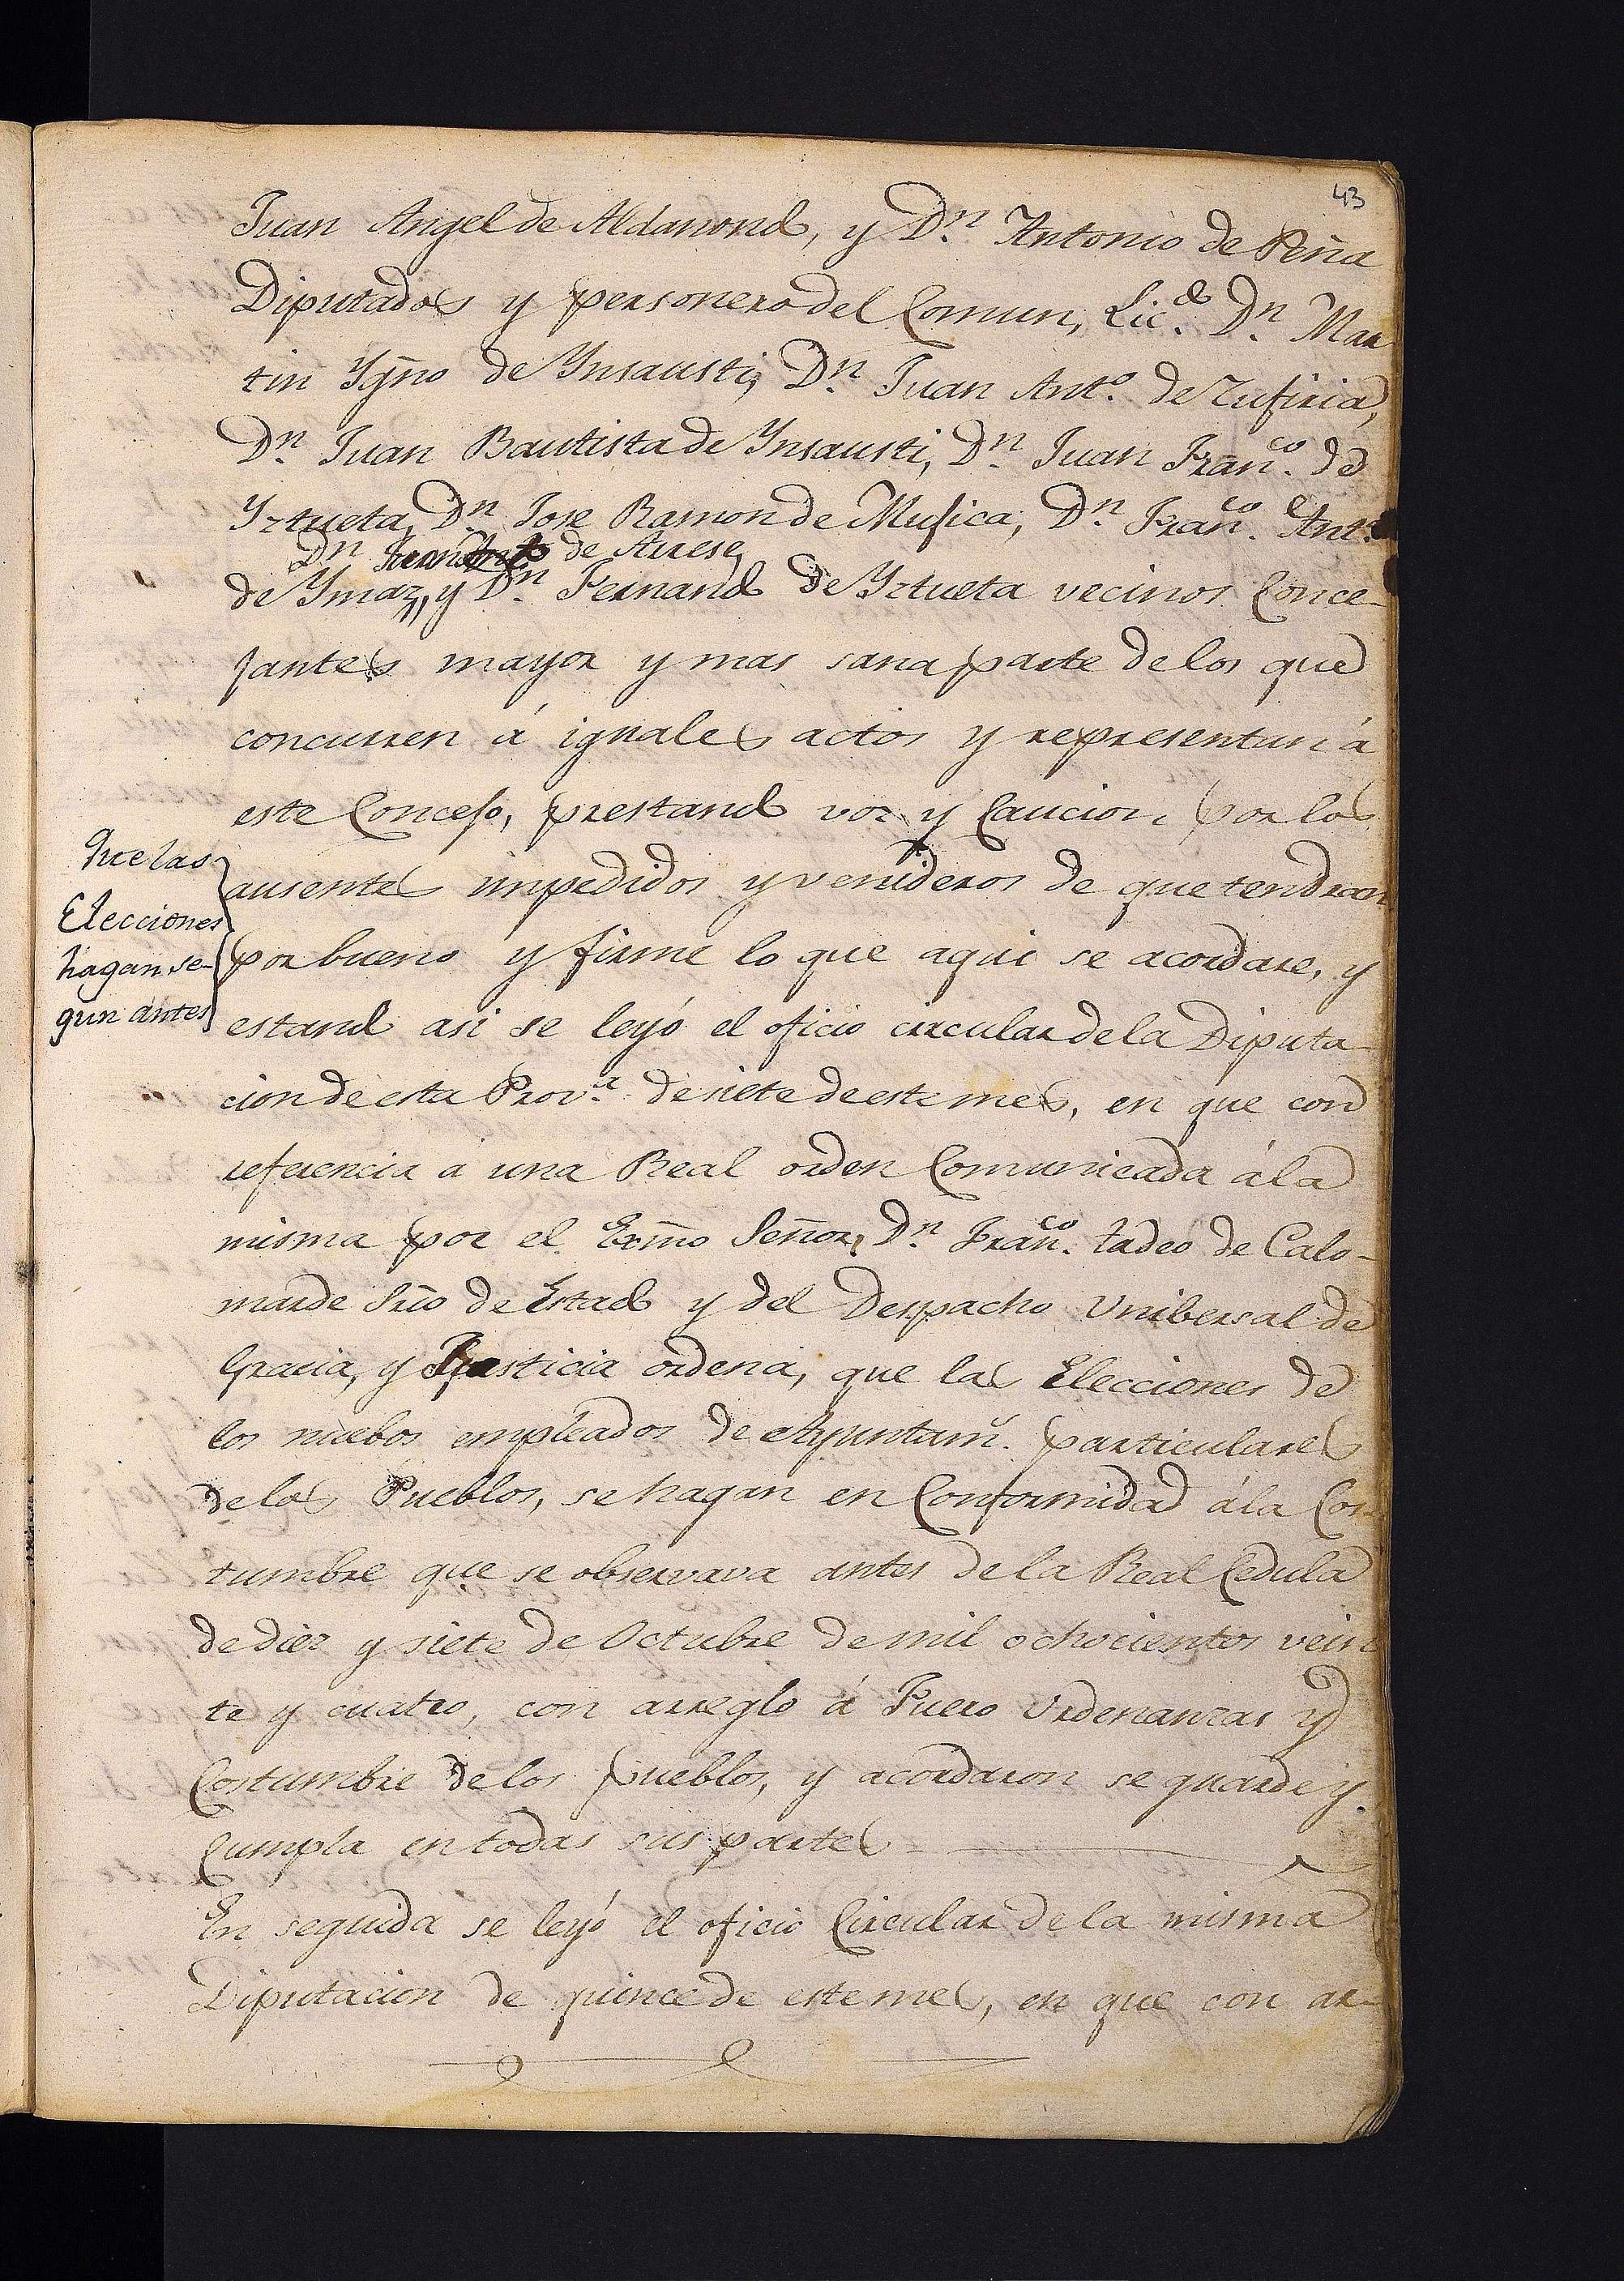 43
Juan Angel de Aldanondo, y Dn. Antonio de Peña
Diputados y personero del Comun, Licdo. Dn. Mar
tin Ygno de Ynsausti, Dn. Juan Anto. de Zufiria,
Dn. Juan Bautista de Ynsausti, Dn. Juan Franco. de
Yztueta, Dn. Jose Ramon de Mugica, Dn. Franco. Anto.
Dn. Juan de Arrese,
de Ymaz, y Dn. Fernando de Yztueta vecinos Conce-
jantes mayor y mas sana parte de los que
concurren á iguales actos y representan á
este Concejo, prestando voz y Caucion por los
Que las
Elecciones
hagan se-
gun antes
ausentes impedidos y venideros de que tendran
por bueno y firme lo que aqui se acordare, y
estando asi se leyó el oficio circular de la Diputa
cion de esta Prova. de siete de este mes, en que con
referencia á una Real orden Comunicada á la
misma por el Exmo Señor, Dn. Franco. tadeo de Calo-
marde Srio de Estado y del Despacho Unibersal de
Gracia, y Justicia ordena, que las Elecciones de
los nuebos empleados de Ayuntam. particulares
de los Pueblos, se hagan en Conformidad á la Cos-
tumbre que se observava antes de la Real Cedula
de diez y siete de Octubre de mil ochocientos vein
te y cuatro, con arreglo á Fuero Ordenanzas y
Costumbre de los pueblos, y acordaron se guarde y
Cumpla en todas sus partes
En seguida se leyó el oficio Circular de la misma
Diputacion de quince de este mes, en que con ar-